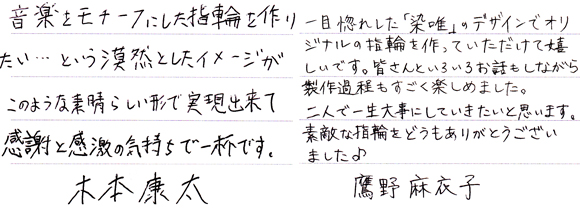 音楽をモチーフにした指輪を作り
たい…という漠然としたイメージが
このような素晴らしい形で実現出来て
感謝と感激の気持ちで一杯です。
木本康太
一目惚れした「染唯」のデザインでオリ
ジナルの指輪を作っていただけて嬉
しいです。皆さんといろいろお話もしながら
製作過程もすごく楽しめました。
二人で一生大事にしていきたいと思います。
素敵な指輪をどうもありがとうござい
ました♪
鷹野麻衣子